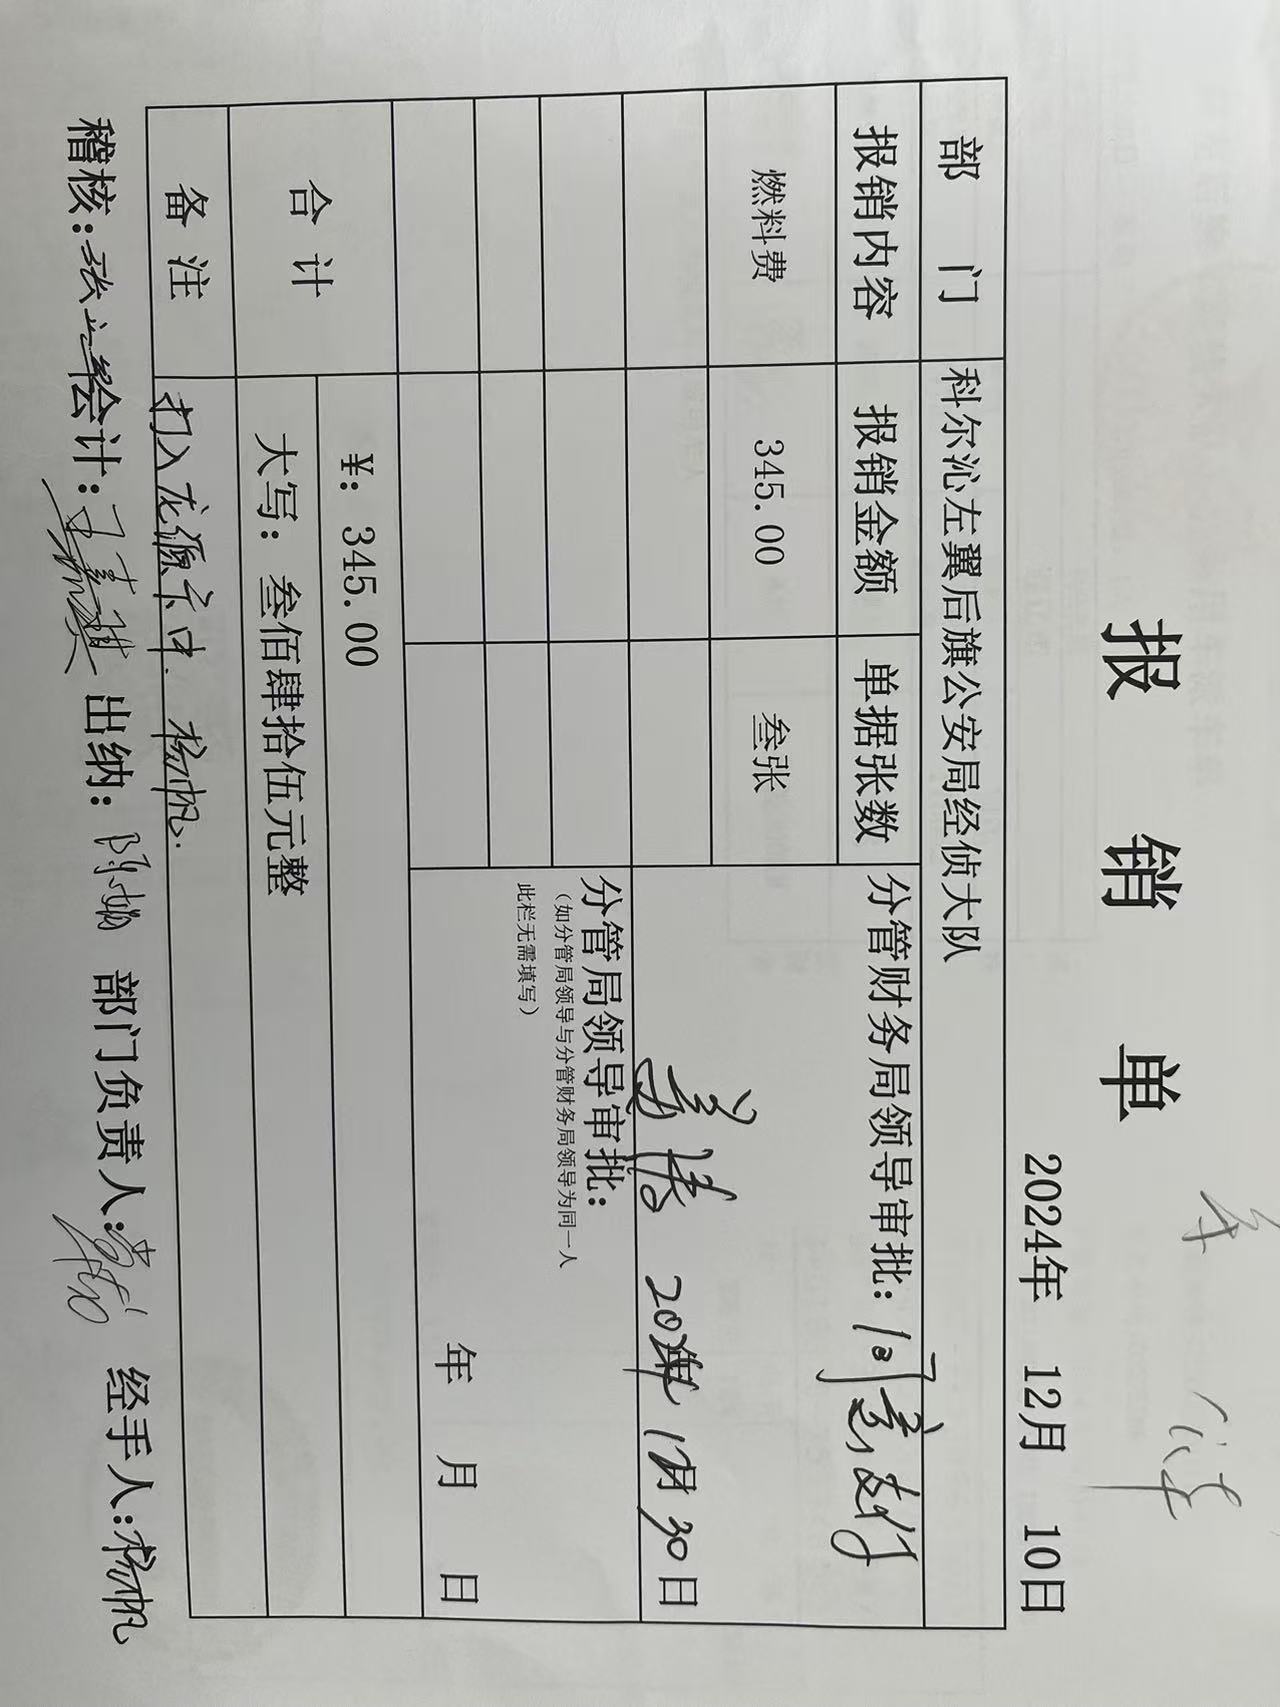 报销单
2024年 12月 10日
部门 科尔沁左翼后旗公安局经侦大队
报销内容 报销金额 单据张数 分管财务局领导审批：同意支付
燃料费 345.00 叁张
2024年12月30日
分管局领导审批：
（如分管局领导与分管财务局领导为同一人
此栏无需填写）
年 月 日
合计 ¥：345.00
大写：叁佰肆拾伍元整
备注 打入龙源卡中. 杨帆.
稽核：张 会计：王 出纳：陈 部门负责人： 经手人：杨帆